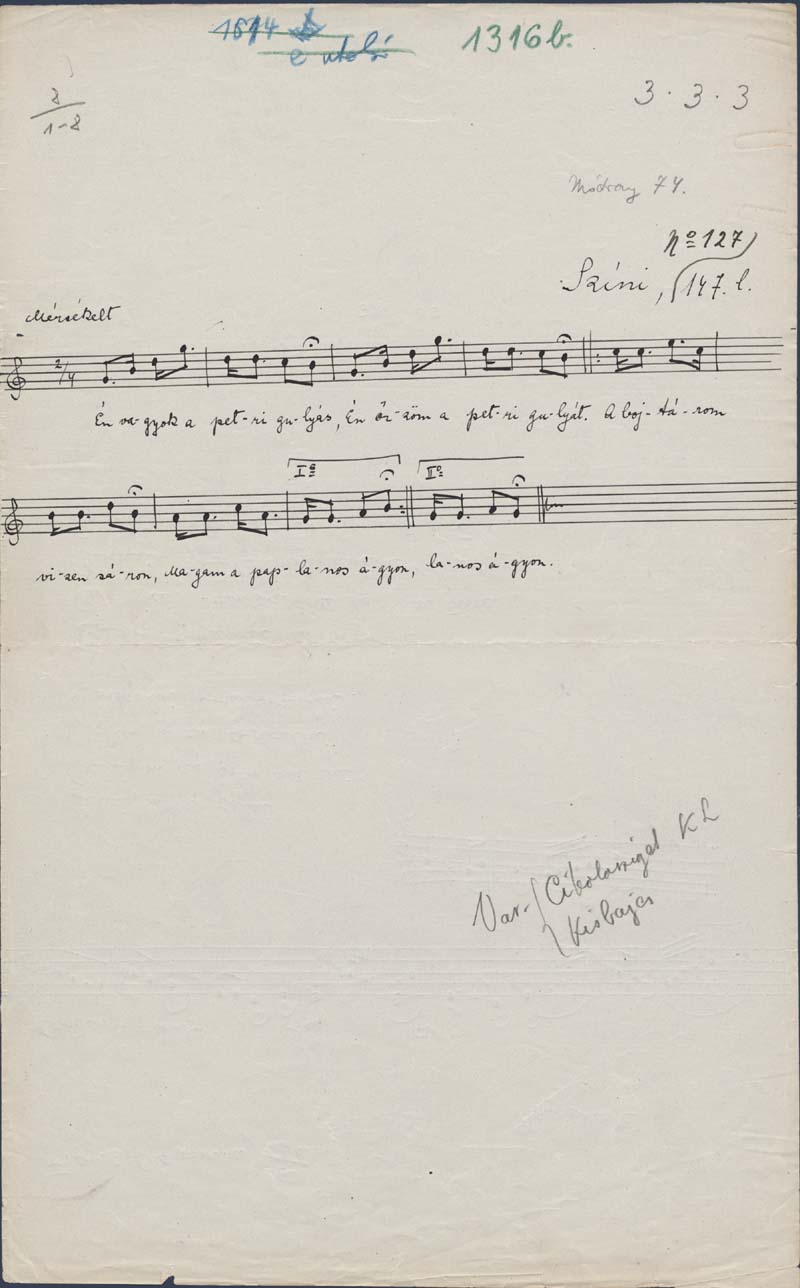 1814
e utolsó
1316b.
8
1-8
3 · 3 · 3
Mátray 74.
Nº 127
Színi, 147. l.
Mérsékelt
2/4
Én va-gyok a pet-ri gu-lyás, Én őr-zöm a pet-ri gu-lyát. A boj-tá-rom
Iº IIº
vi-zen sá-ron, Ma-gam a pap-la-nos á-gyon, la-nos á-gyon.
Var. Cikolasziget KL
Kisbajcs